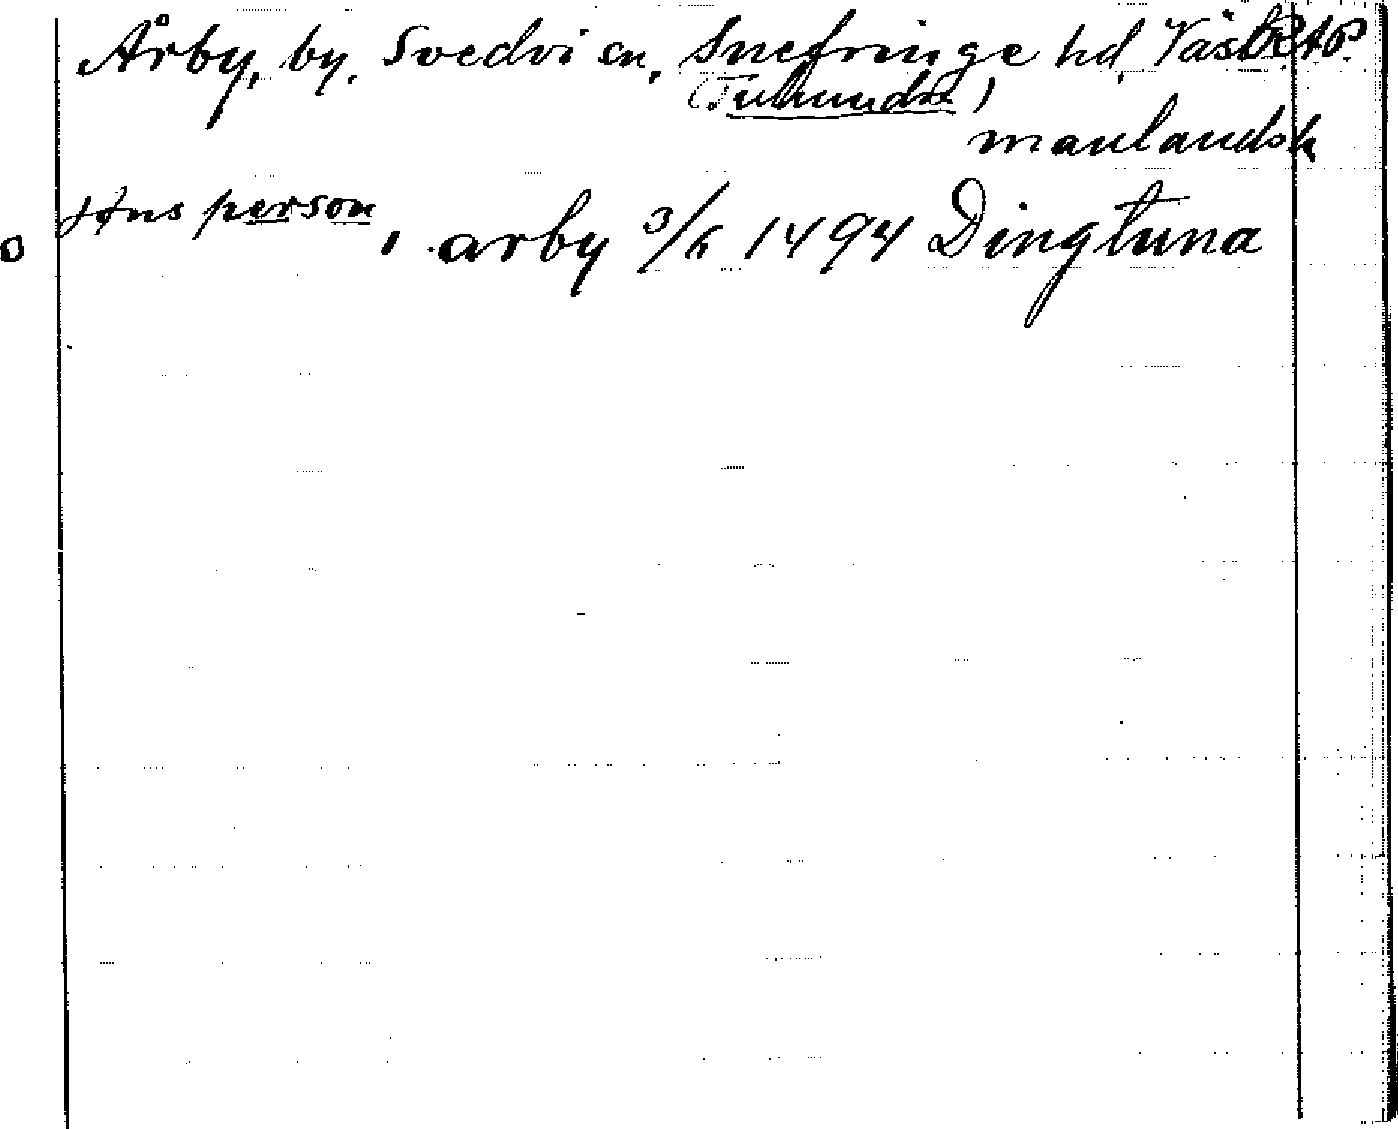 Årby, by, Svedvi sn, Snefringe hd, Väst
(Tuhundra)
manlandsk
Jons person, arby 3/6 1494 Dingtuna